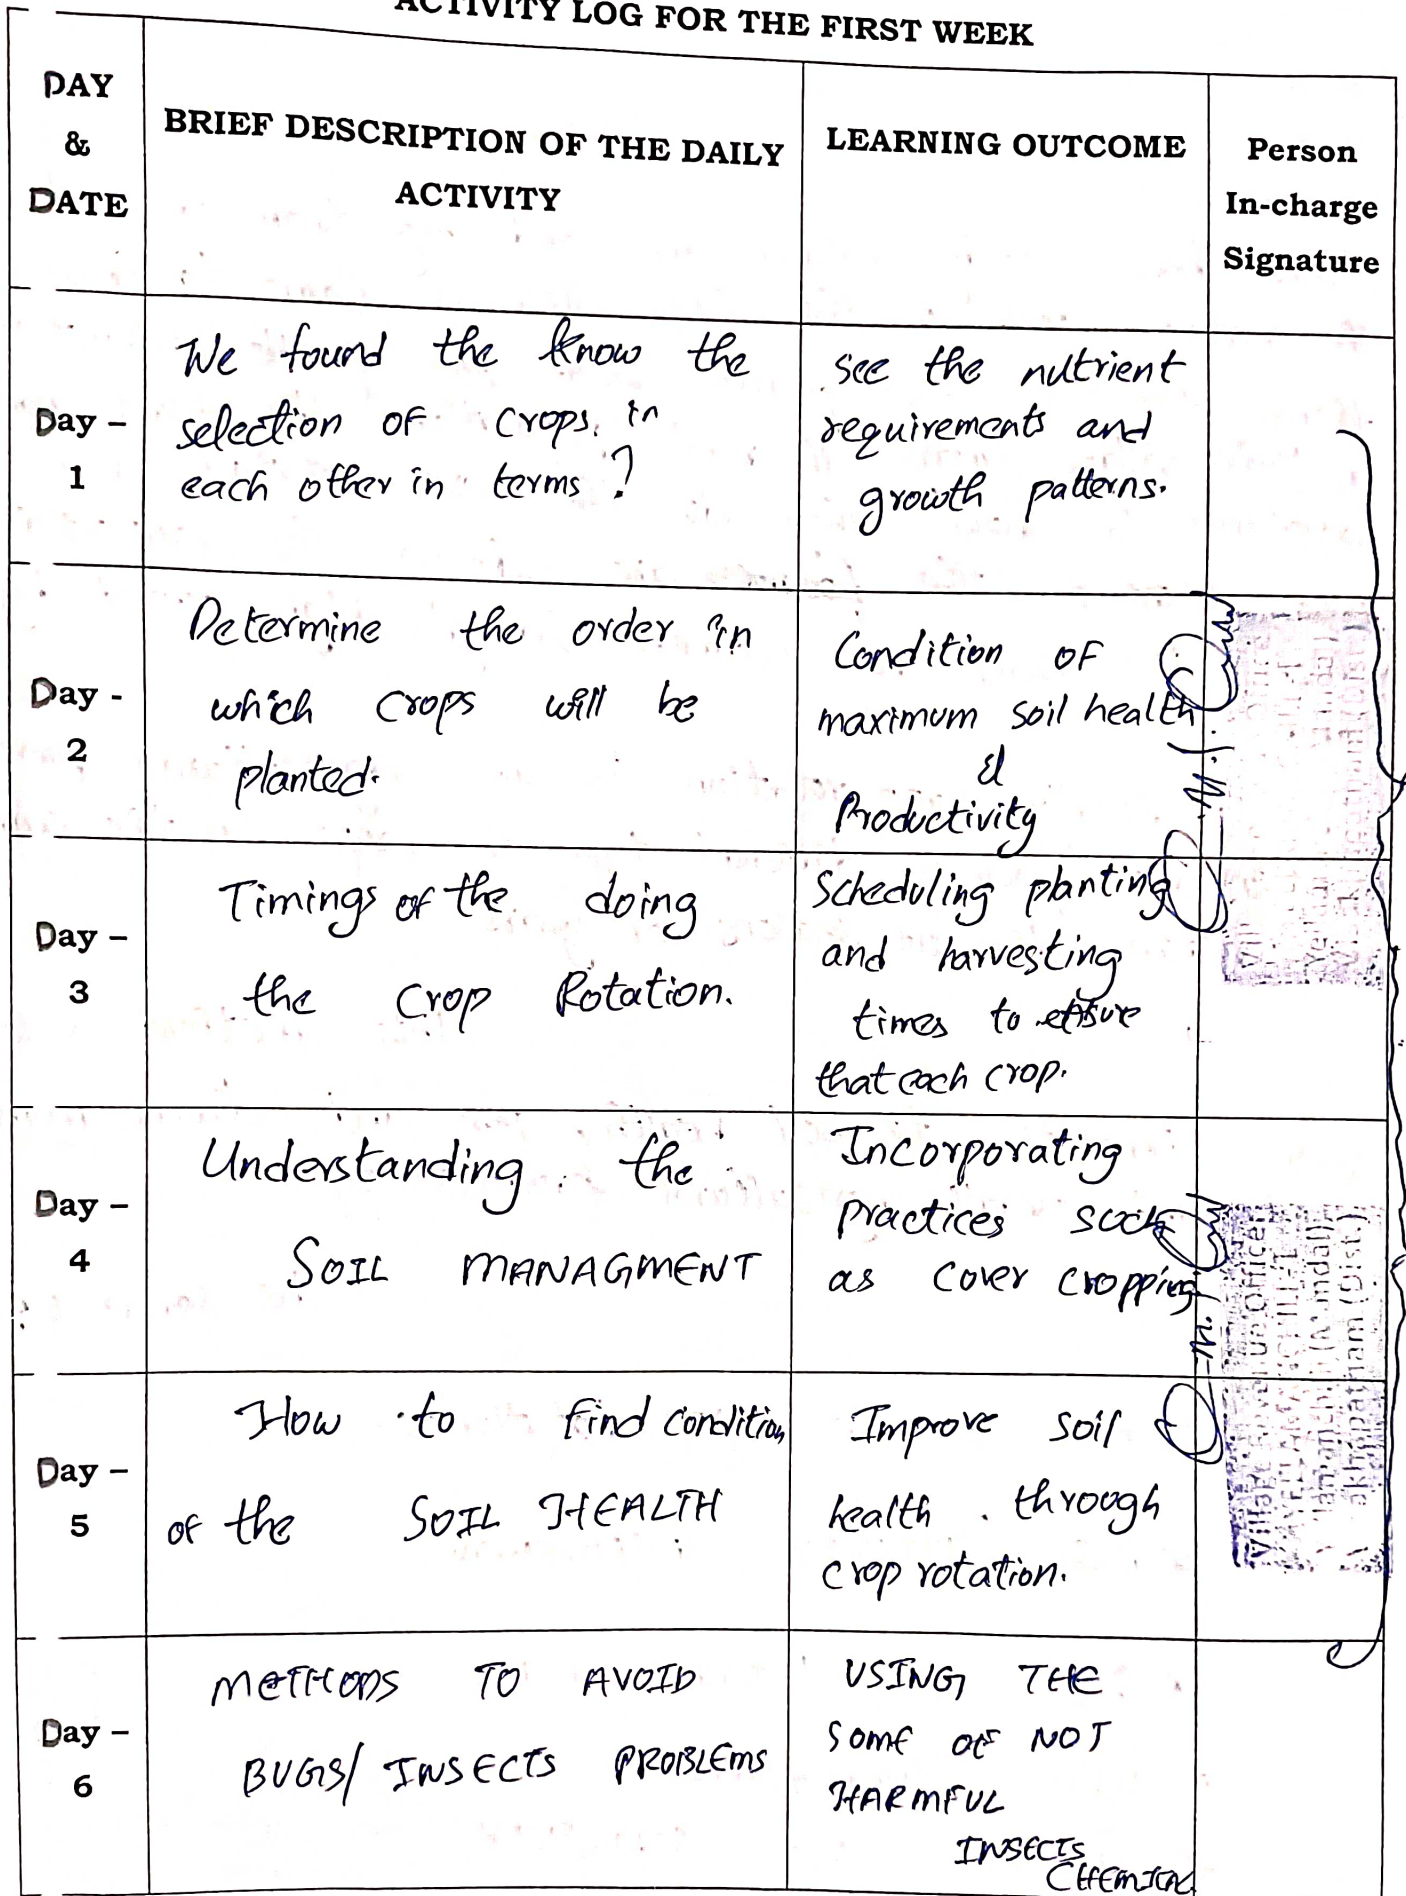 ACTIVITY LOG FOR THE FIRST WEEK
DAY
&
DATE
BRIEF DESCRIPTION OF THE DAILY
ACTIVITY
LEARNING OUTCOME
Person
In-charge
Signature
Day –
1
We found the know the
selection of crops. in
each other in terms ?
see the nutrient
requirements and
growth patterns.
Day -
2
Determine the order in
which crops will be
planted.
Condition of
maximum soil health
&
Productivity
Day –
3
Timings of the doing
the Crop Rotation.
Scheduling planting
and harvesting
times to ensure
that each crop.
Day –
4
Understanding the
SOIL MANAGMENT
Incorporating
practices such
as cover cropping
Day –
5
How to find condition
of the SOIL HEALTH
Improve soil
health . through
crop rotation.
Day –
6
METHODS TO AVOID
BUGS/ INSECTS PROBLEMS
USING THE
SOME OF NOT
HARMFUL
INSECTS
CHEMICAL
Village Officer
(Mandal)
(Dist.)